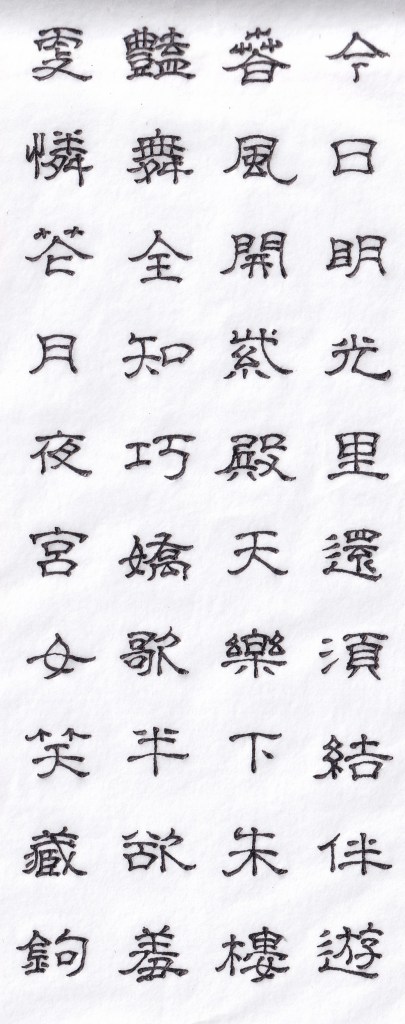 今日明光里還湏結伴遊
萅風開紫殿天樂下朱樓
豔舞全知巧嬌歌半欲羞
更憐花月夜宮女笑藏鉤